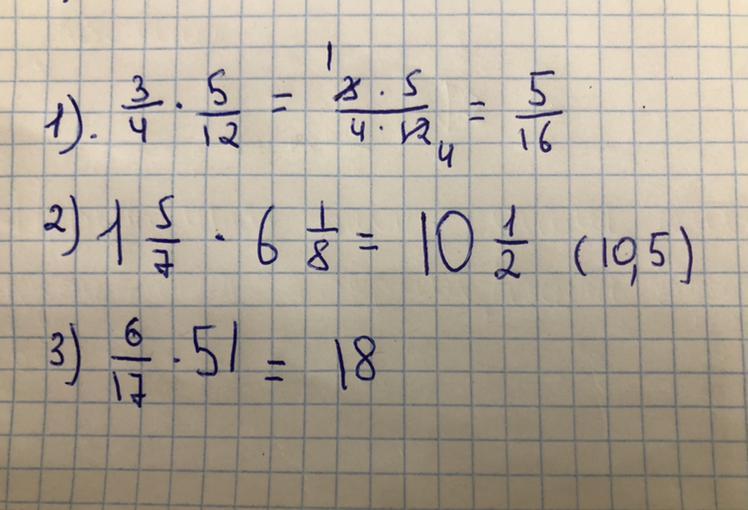 1). 3/4 · 5/12 = (3 · 5)/(4 · 12) 1 4 = 5/16
2) 1 5/7 · 6 1/8 = 10 1/2 (10,5)
3) 6/17 · 51 = 18